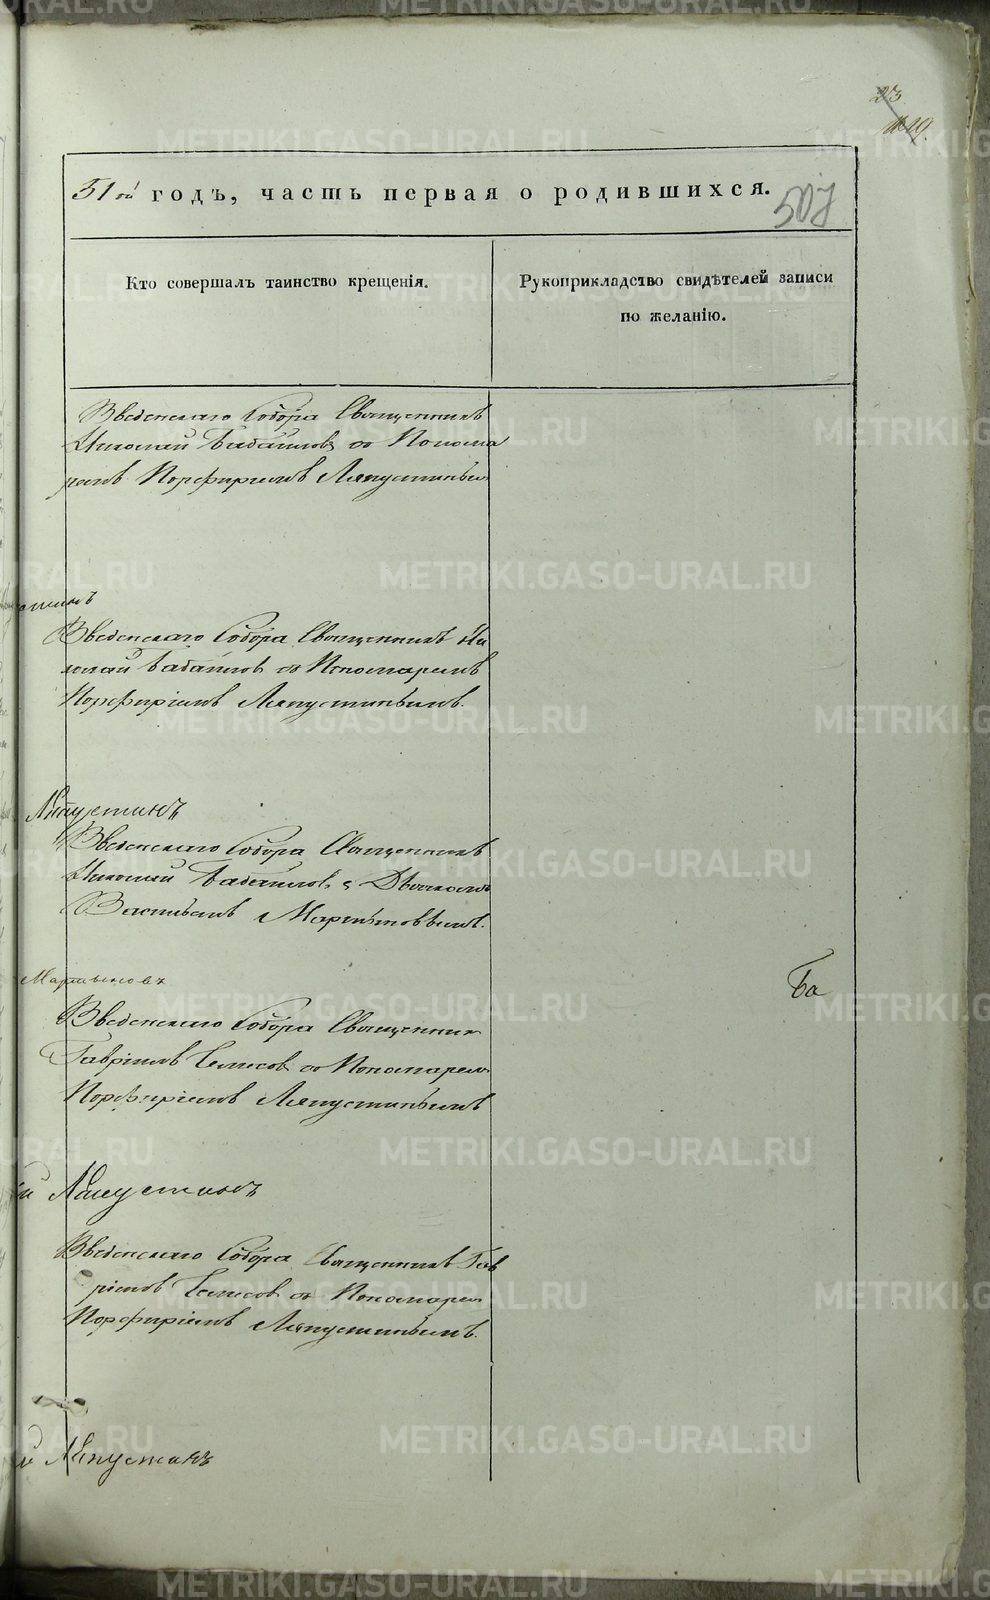 23
51ой годъ, часть первая о родившихся.
507
Кто совершалъ таинство крещенія.
Рукоприкладство свидѣтелей записи
по желанію.
Введенскаго Собора Священникъ
Николай Бабаиловъ со Понома
ремъ Порфиріемъ Ляпустинымъ
Введенскаго Собора Священникъ Ни
колай Бабаиловъ со Пономаремъ
Порфиріемъ Ляпустинымъ.
Ляпустинъ
Введенскаго Собора Священникъ
Николай Бабаиловъ, с Дьячкомъ
Василіемъ Мартыновымъ.
Мартыновъ
Ба
Введенскаго Собора Священникъ
Гавріилъ со Пономаремъ
Порфиріемъ Ляпустинымъ
й Ляпустинъ
Введенскаго Собора Священникъ Гав
ріилъ со Пономаремъ
Порфиріемъ Ляпустинымъ.
й Ляпустинъ
METRIKI.GASO-URAL.RU